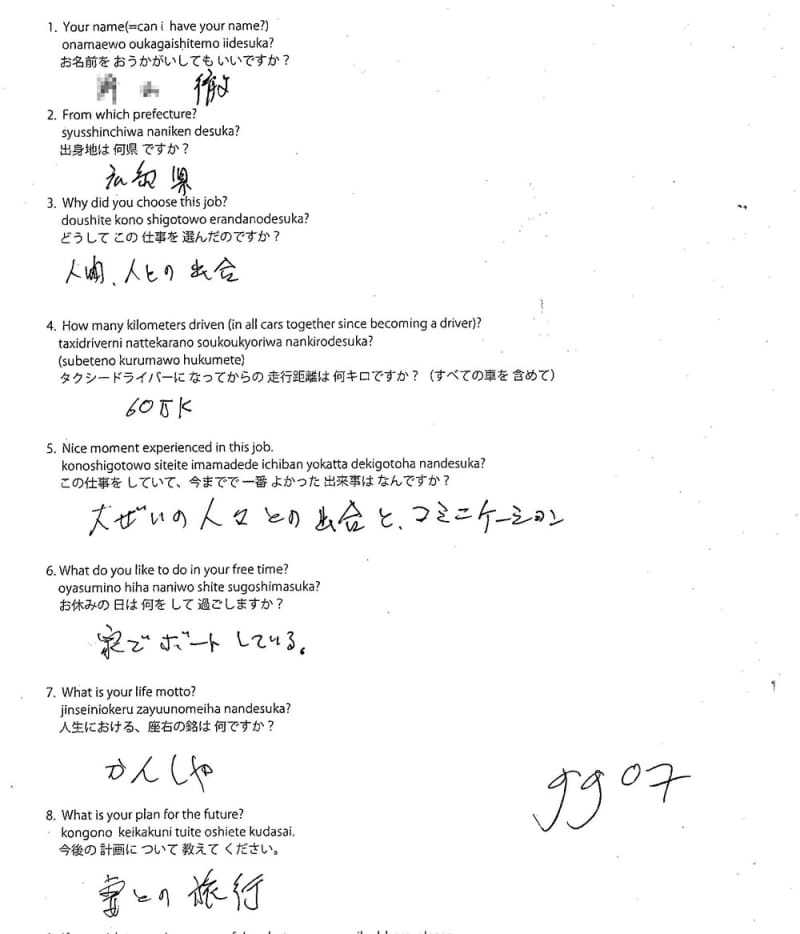 1. Your name(=can i have your name?)
onamaewo oukagaishitemo iidesuka?
お名前を おうかがいしても いいですか？
徹
2. From which prefecture?
syusshinchiwa naniken desuka?
出身地は 何県 ですか？
高知県
3. Why did you choose this job?
doushite kono shigotowo erandanodesuka?
どうして この 仕事を 選んだのですか？
人間、人との出合
4. How many kilometers driven (in all cars together since becoming a driver)?
taxidriverni nattekarano soukoukyoriwa nankirodesuka?
(subeteno kurumawo hukumete)
タクシードライバーに なってからの 走行距離は 何キロですか？（すべての車を 含めて）
60万K
5. Nice moment experienced in this job.
konoshigotowo siteite imamadede ichiban yokatta dekigotoha nandesuka?
この仕事を していて、今までで 一番 よかった 出来事は なんですか？
大ぜいの人々との出合と、コミニケーション
6. What do you like to do in your free time?
oyasumino hiha naniwo shite sugoshimasuka?
お休みの 日は 何を して 過ごしますか？
家でボートしている。
7. What is your life motto?
jinseiniokeru zayuunomeiha nandesuka?
人生における、座右の銘は 何ですか？
かんしゃ
gg07
8. What is your plan for the future?
kongono keikakuni tuite oshiete kudasai.
今後の 計画に ついて 教えて ください。
妻との旅行